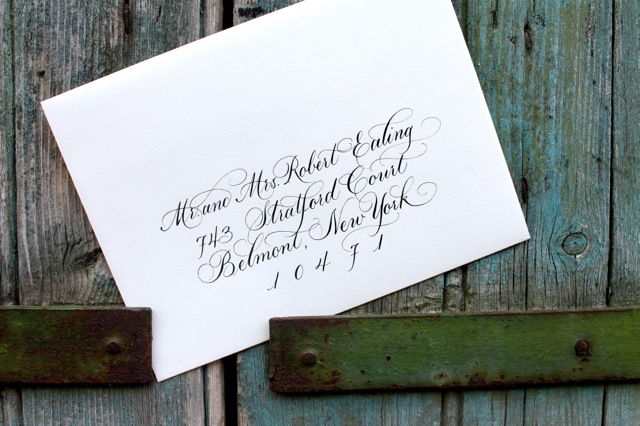 Mr. and Mrs. Robert Ealing
743 Stratford Court
Belmont, New York
10471